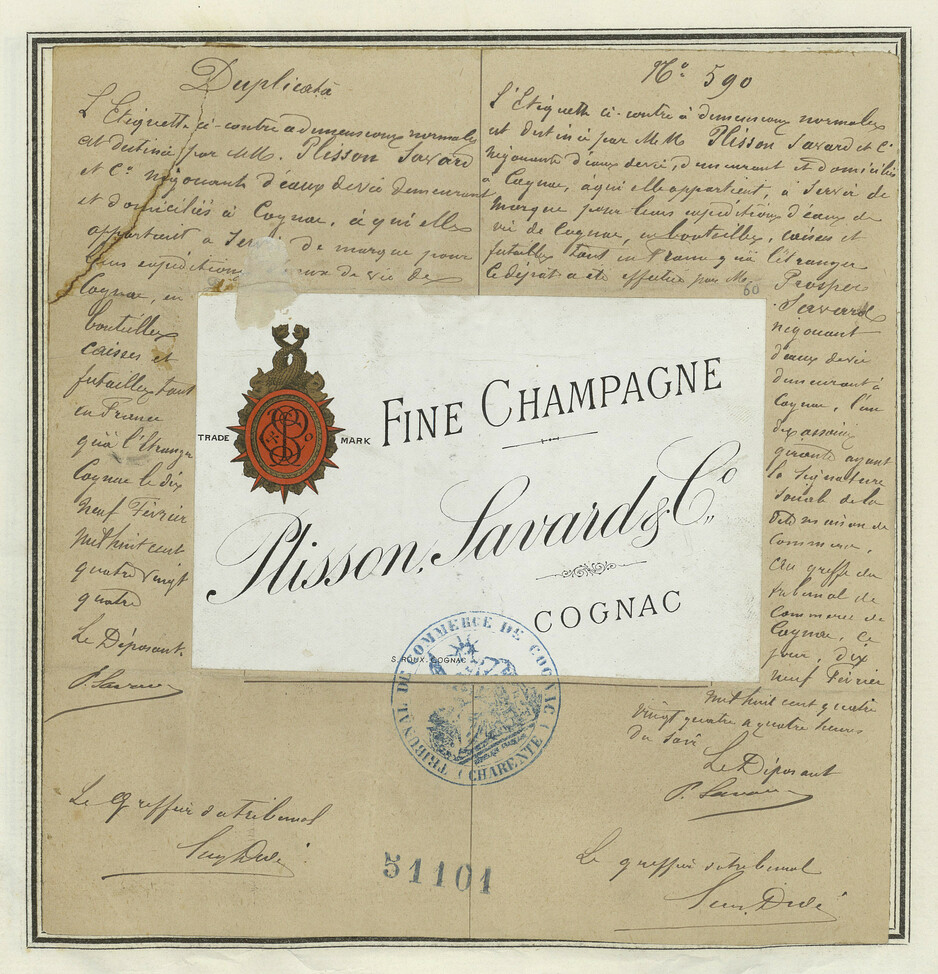 Duplicata
L'Etiquette ci-contre a dimensions normales
et destinée par MM. Plisson Savard
et Cie négociants d'eaux de vie demeurant
et domiciliés à Cognac, à qui elle
appartient à Servir de marque pour
leurs expéditions d'eaux de vie de
Cognac, en
bouteilles
caisses et
futailles tant
en France
qu'à l'étranger
Cognac le dix
neuf Février
mil huit cent
quatre vingt
quatre
Le Déposant
P. Savard
Le Greffier du tribunal
No 590
L'Etiquette ci-contre à dimensions normales
est destinée par MM. Plisson Savard et Cie
négociants d'eaux de vie, demeurant et domiciliés
à Cognac, à qui elle appartient, à Servir de
marque pour leurs expéditions d'eaux de
vie de Cognac, en bouteilles, caisses et
futailles tant en France qu'à l'étranger
Ce dépôt a été effectué par Mr
60
Prosper
Savard
négociant
d'eaux de vie
demeurant à
Cognac, l'un
des associés
gérants ayant
la signature
sociale de la
dite maison de
Commerce.
Au greffe du
tribunal de
Commerce de
Cognac, ce
jour, dix
neuf Février
mil huit cent quatre
vingt quatre à quatre heures
du soir
Le Déposant
P. Savard
Le greffier du tribunal
TRADE MARK
FINE CHAMPAGNE
Plisson, Savard & Co
COGNAC
S. ROUX. COGNAC
TRIBUNAL DE COMMERCE DE COGNAC (CHARENTE)
51101